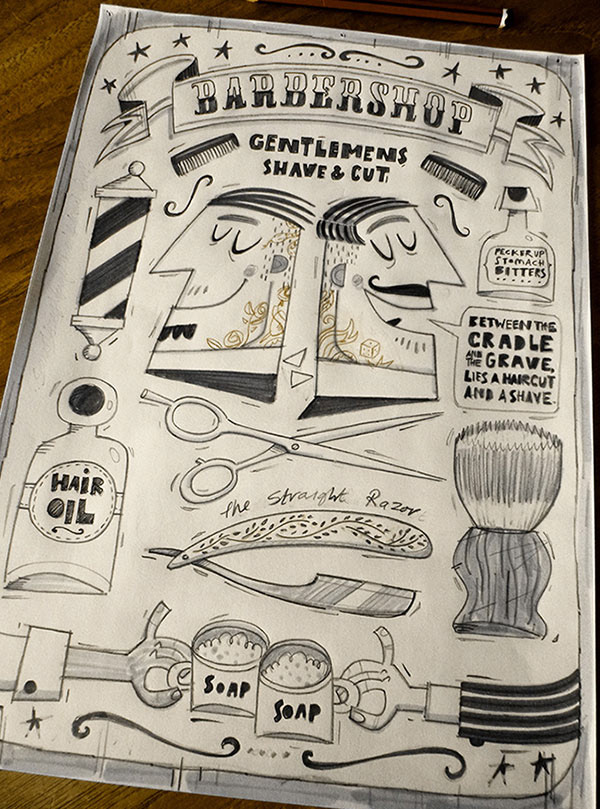 BARBERSHOP
GENTLEMENS
SHAVE & CUT
PECKER UP
STOMACH
BITTERS
BETWEEN THE
CRADLE
AND THE GRAVE,
LIES A HAIRCUT
AND A SHAVE.
HAIR
OIL
The Straight Razor
SOAP
SOAP